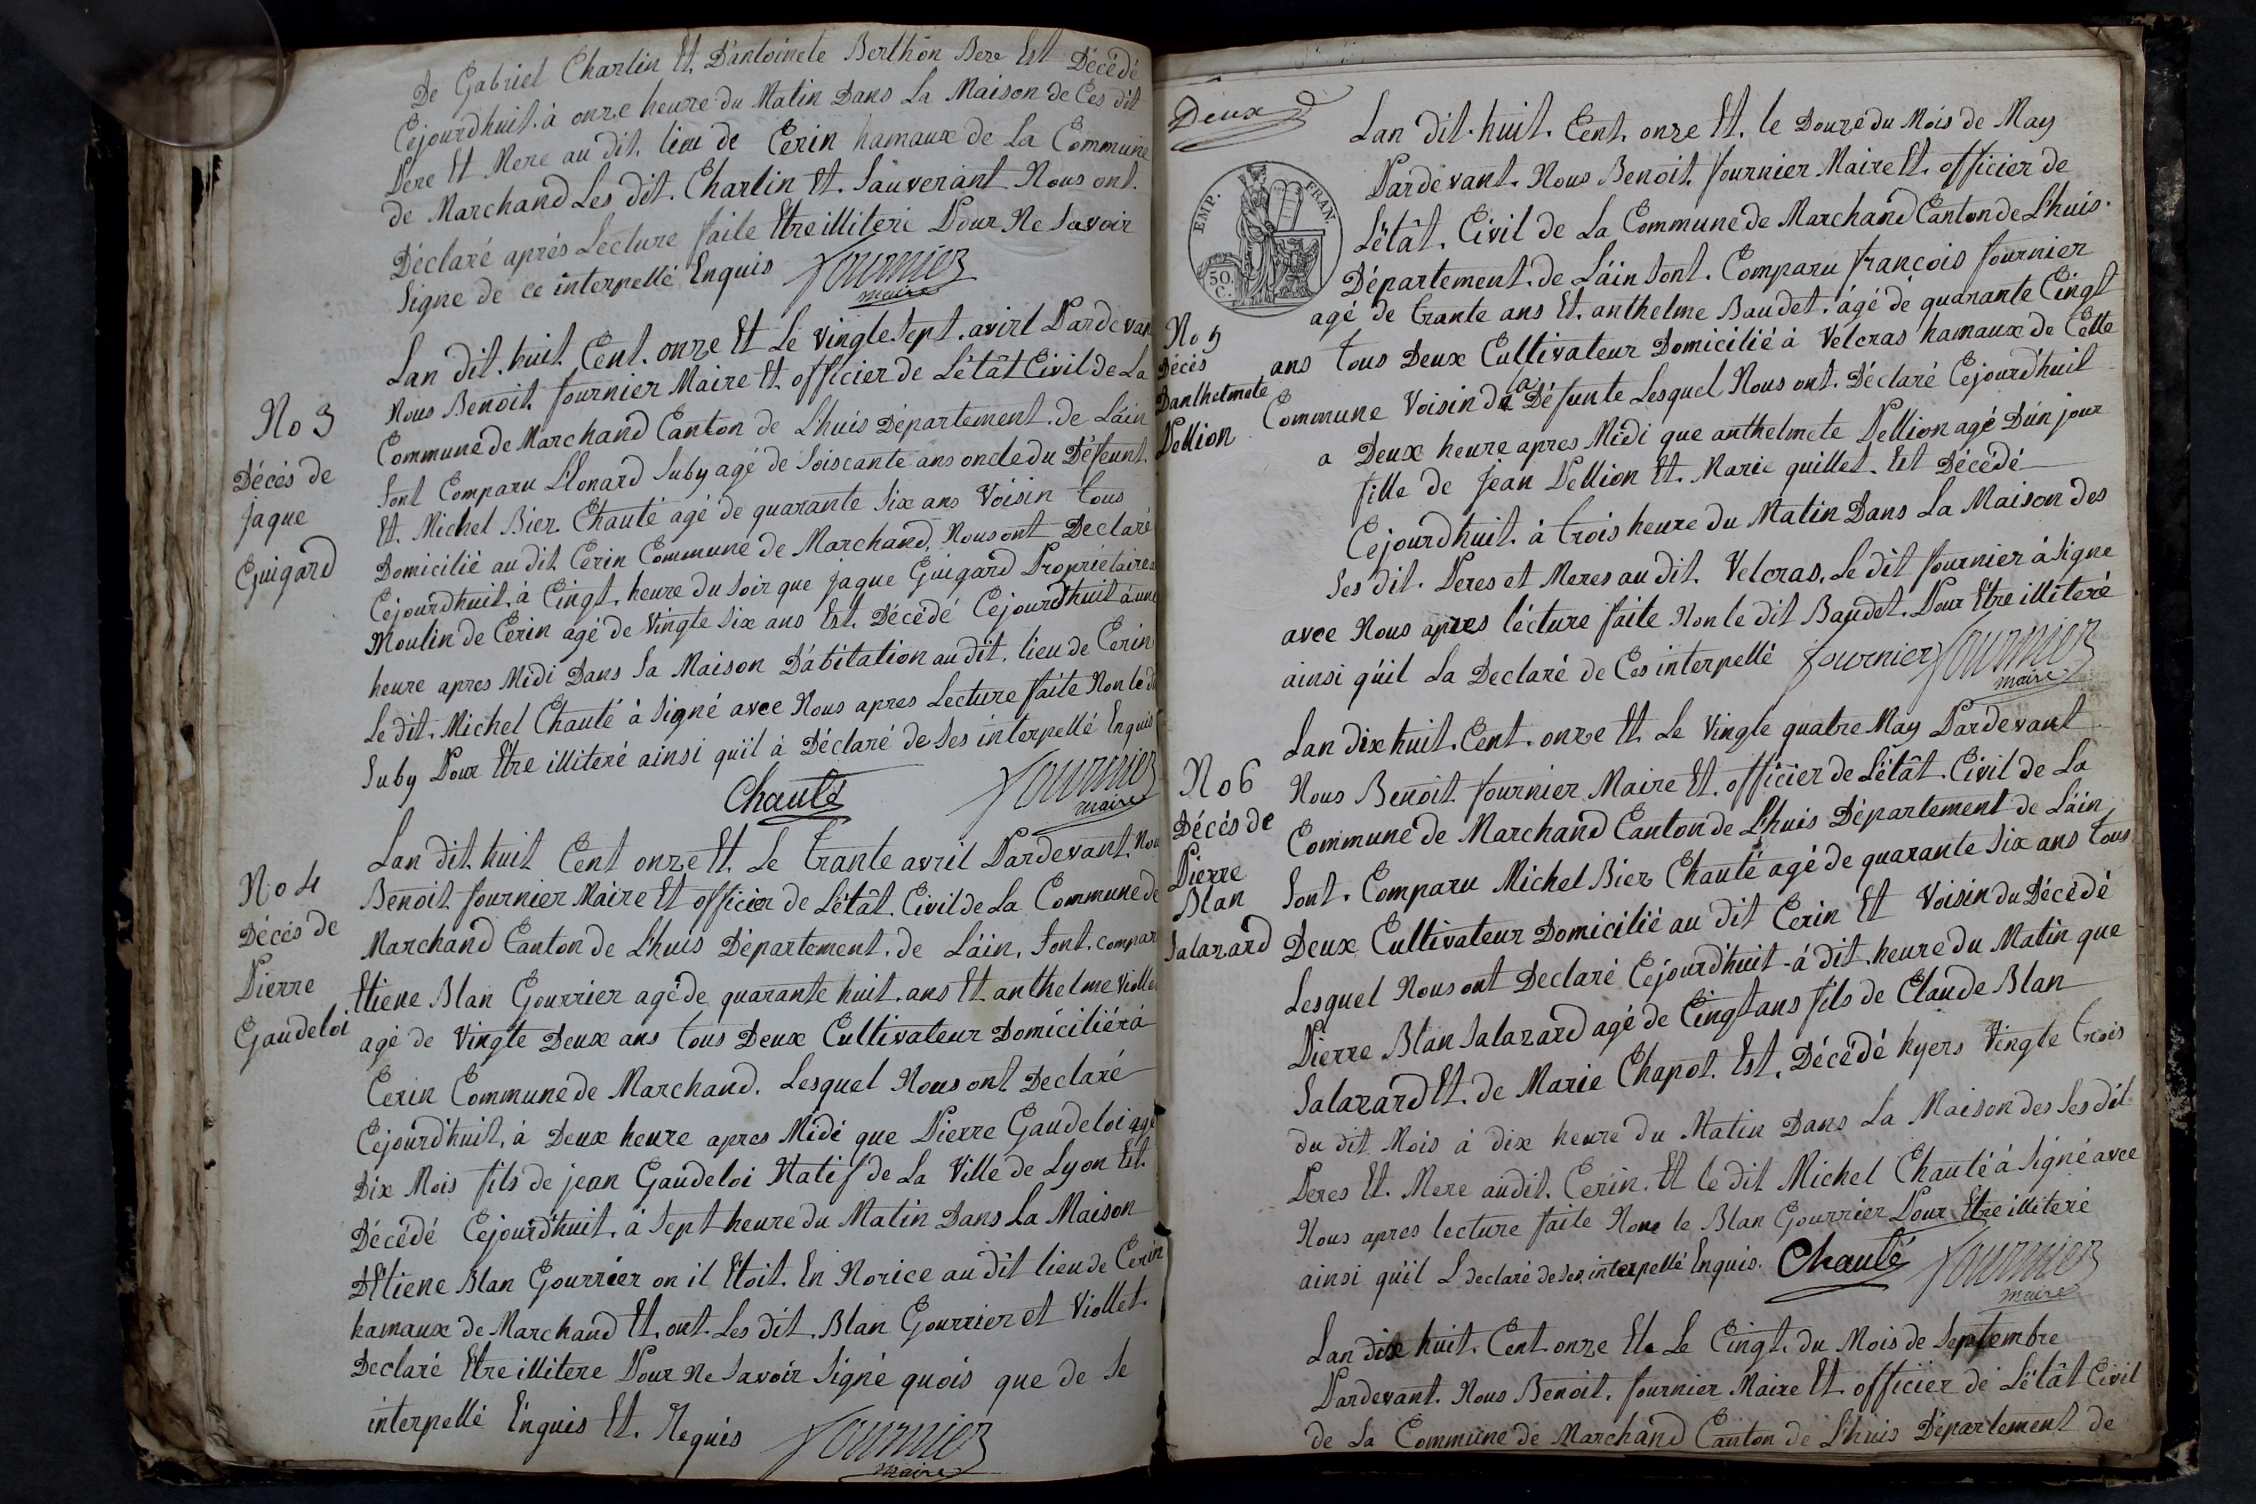 De Gabriel Charlin Et, D'antoinete Berthon Bere Est Décédé
Cejourdhuit. à onze heure du Matin Dans La Maison de Ces dit
Pere Et Mere au dit. lieu de Cerin hamaux de La Commune
de Marchand Les dit. Charlin Et. Sauverant Nous ont.
Déclaré aprés Lecture faite Etre illiteré Pour Ne Savoir
Signe de ce interpellé Enquis Fournier
maire
Lan dit. huit. Cent. onze Et Le vingte Sept. avirl Pardevan
Nous Benoit. fournier Maire Et. officier de L'êtât Civil de La
No 3
Commune de Marchand Canton de L'huis Département. de Láin
Décés de
Sont Comparu Léonard Suby agé de Soiscante ans oncle du Défeunt.
jaque
Et. Michel Bier Chauté agé de quarante Six ans Voisin tous
Guigard
Domicilié au dit Cerin Commune de Marchand, Nous ont Declaré
Cejourdhuit. à Cingt. heure du Soir que jaque Guigard Propriétaire
Moulin de Cerin agé de Vingte Six ans Est. Décédé Cejourdhuit à une
heure apres Midi Dans Sa Maison D'abitation au dit. lieu de Cerin
Le dit. Michel Chauté à Signé avec Nous apres Lecture faite Non le d
Suby Pour Etre illiteré ainsi qu'il à Déclaré de Ses interpellé Enquis
Chauté Fournier
maire
Lan dit. huit Cent onze Et. Le trante avril Pardevant. Nou
No 4
Benoit fournier Maire Et officier de L'êtât. Civil de La Commune de
Décés de
Marchand Canton de L'huis Département. de Láin. Sont. compar
Pierre
Etiene Blan Gourrier agé de quarante huit. ans Et anthelme Viollet
Gaudeloi
agé de Vingte Deux ans tous Deux Cultivateur Domicilié à
Cerin Commune de Marchand. Lesquel Nous ont Declaré
Cejourd'huit, à Deux heure apres Midi que Pierre Gaudeloi agé
Dix Mois fils de jean Gaudeloi Natif de La Ville de Lyon Est.
Décédé Cejourd'huit. à Sept heure du Matin Dans La Maison
D'Etiene Blan Gourrier on il Etoit. En Norice au dit lieu de Cerin
hamaux de Marchand Et, ont. Les dit, Blan Gourrier et Viollet.
Declaré Etre illitere Pour Ne Savoir Signé quois que de Se
interpellé Enquis Et. Requis Fournier
maire
Deux
EMP. FRAN
50 C.
Lan dit. huit. Cent. onze Et. le Douze du Mois de May
Pardevant. Nous Benoit. fournier Maire Et. officier de
L'êtât. Civil de La Commune de Marchand Canton de L'huis.
Département. de Láin Sont. Comparu françois fournier
agé de trante ans Et. anthelme Baudet. ágé de quarante Cingt
No 5
ans tous Deux Cultivateur Domicilié à Velcras hamaux de Cette
Décés
Danthelmete
Commune Voisin de la Défunte Lesquel Nous ont. Déclaré Cejourd'huit
Pellion
a Deux heure apres Midi que anthelmete Pellion agé D'un jour
fille de jean Pellion Et. Marie quillet. Est Décédé
Cejourdhuit. à trois heure du Matin Dans La Maison des
Ses dit. Peres et Meres au dit. Velcras, Le dit fournier à Signe
avec Nous apres lécture faite Non le dit Baudet. Pour Etre illiteré
ainsi qu'il La Declaré de Ces interpellé fournier Fournier
maire
Lan dix huit. Cent. onze Et. Le Vingte quatre May Pardevant
No 6
Nous Benoit fournier Maire Et. officier de L'êtât. Civil de La
Décés de
Commune de Marchand Canton de L'huis Département de Láin
Pierre
Blan
Sont. Comparu Michel Bier Chauté agé de quarante Six ans tous
Salazard
Deux Cultivateur Domicilié au dit Cerin Et Voisin du Décédé
Lesquel Nous ont Declaré Cejourd'huit - à dit. heure du Matin que
Pierre Blan Salazard agé de Cingt ans fils de Claude Blan
Salazard Et. de Marie Chapot. Est. Décédé hyers Vingte trois
du dit Mois à dix heure du Matin Dans La Maison des Ses dit
Peres Et. Mere au dit. Cerin. Et le dit Michel Chauté à Signé avec
Nous apres lecture faite Non le Blan Gourrier Pour Etre illiteré
ainsi qu'il L declaré de Ses interpellé Enquis. Chauté Fournier
maire
Lan dix huit. Cent. onze Et Le Cingt. du Mois de Septembre
Pardevant. Nous Benoit. fournier Maire Et officier de L'êtât Civil
de La Commune de Marchand Canton de L'huis Département de